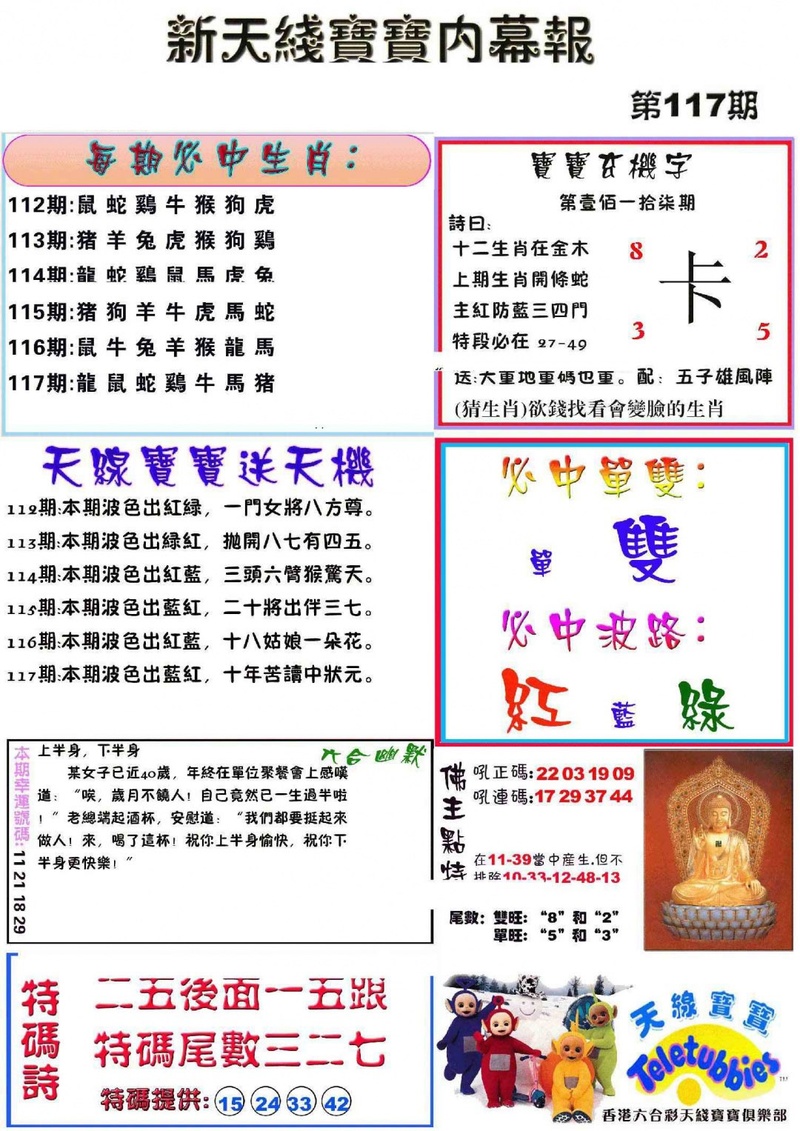 新天綫寶寶内幕報
第117期
每期必中生肖：
112期:鼠 蛇 鷄 牛 猴 狗 虎
113期:猪 羊 兔 虎 猴 狗 鷄
114期:龍 蛇 鷄 鼠 馬 虎 兔
115期:猪 狗 羊 牛 虎 馬 蛇
116期:鼠 牛 兔 羊 猴 龍 馬
117期:龍 鼠 蛇 鷄 牛 馬 猪
寶寶玄機字
第壹佰一拾柒期
詩曰:
十二生肖在金木
上期生肖開條蛇
主紅防藍三四門
特段必在 27-49
8 2
卡
3 5
送:大重地重碼也重。配：五子雄風陣
(猜生肖)欲錢找看會變臉的生肖
天線寶寶送天機
112期:本期波色出紅緑，一門女將八方尊。
113期:本期波色出緑紅，抛開八七有四五。
114期:本期波色出紅藍，三頭六臂猴驚天。
115期:本期波色出藍紅，二十將出伴三七。
116期:本期波色出紅藍，十八姑娘一朵花。
117期:本期波色出藍紅，十年苦讀中狀元。
必中單雙：
單 雙
必中波路：
紅 藍 綠
本期幸運號碼:11 21 18 29
六合幽默
上半身，下半身
某女子已近40歲，年終在單位聚餐會上感嘆
道：“唉，歲月不饒人！自己竟然已一生過半啦
！”老總端起酒杯，安慰道：“我們都要挺起來
做人！來，喝了這杯！祝你上半身愉快，祝你下
半身更快樂！”
佛主點特
吼正碼:22 03 19 09
吼連碼:17 29 37 44
在11-39當中産生.但不
排除10-33-12-48-13
尾數：雙旺：“8”和“2”
單旺：“5”和“3”
特碼詩
二五後面一五跟
特碼尾數三二七
特碼提供: 15 24 33 42
天線寶寶
Teletubbies
TM
香港六合彩天綫寶寶俱樂部